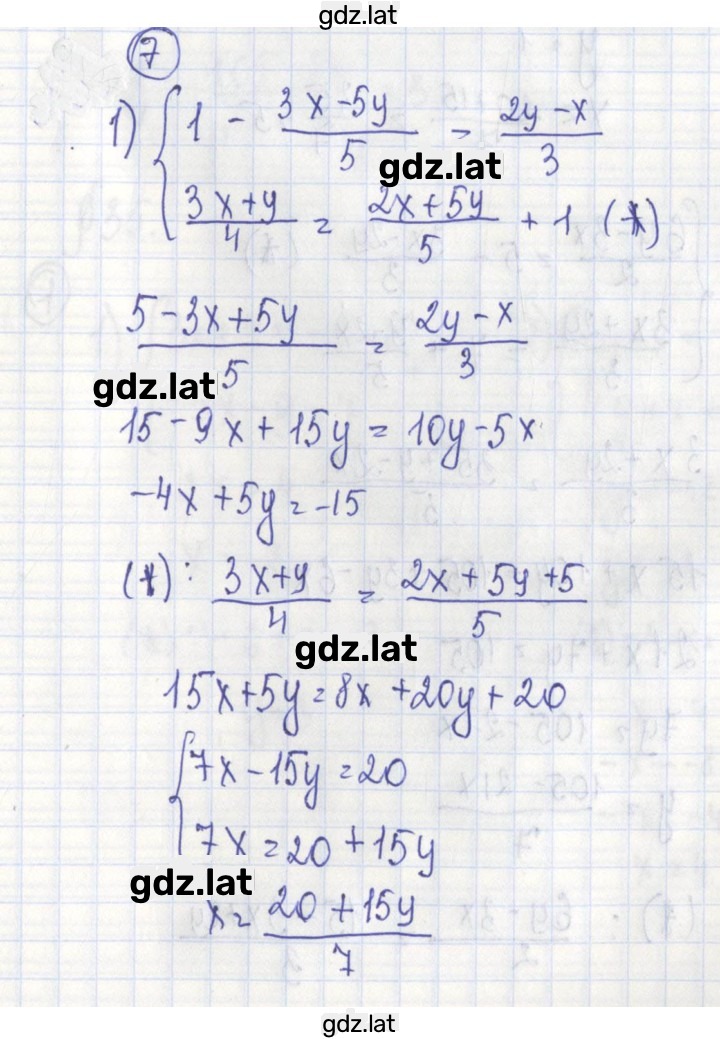 gdz.lat
7
1) { 1 - (3x-5y)/5 = (2y-x)/3
gdz.lat
(3x+y)/4 = (2x+5y)/5 + 1 (*)
(5-3x+5y)/5 = (2y-x)/3
gdz.lat
15-9x+15y=10y-5x
-4x+5y=-15
(*): (3x+y)/4 = (2x+5y+5)/5
gdz.lat
15x+5y=8x+20y+20
{ 7x-15y=20
7x=20+15y
gdz.lat
x=(20+15y)/7
gdz.lat